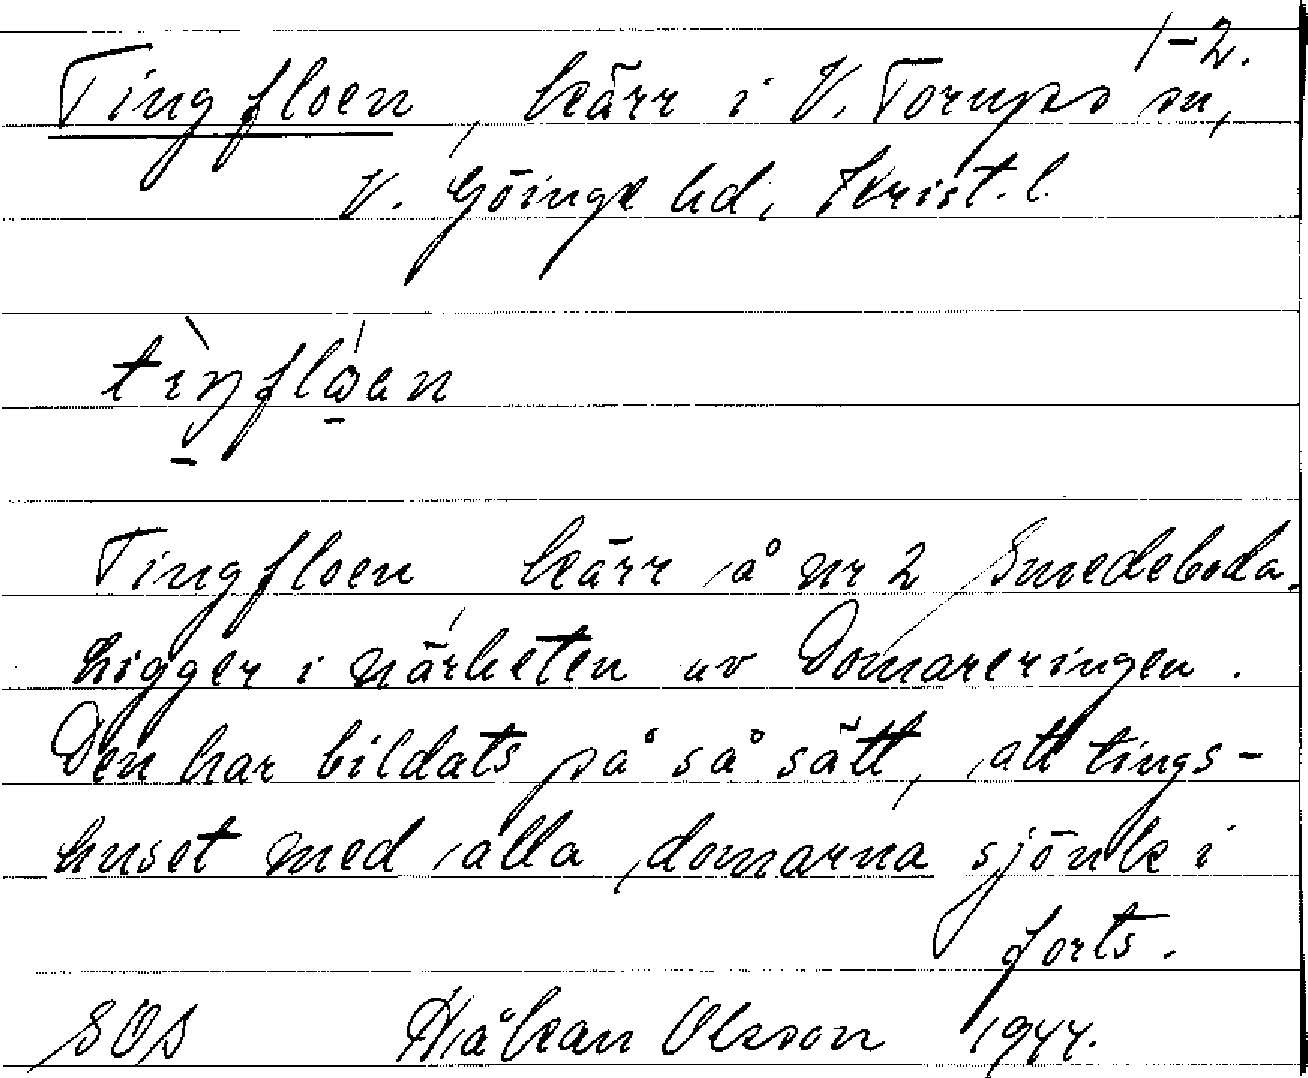 1-2.
Tingfloen, kärr i V. Torups sn,
V. Göinge hd, Krist. l.
Tingfloen, kärr å nr 2 Smedeboda.
Ligger i närheten av Domareringen.
Den har bildats på så sätt, att tings-
huset med alla domarna sjönk i
forts.
SOD Håkan Olsson 1944.